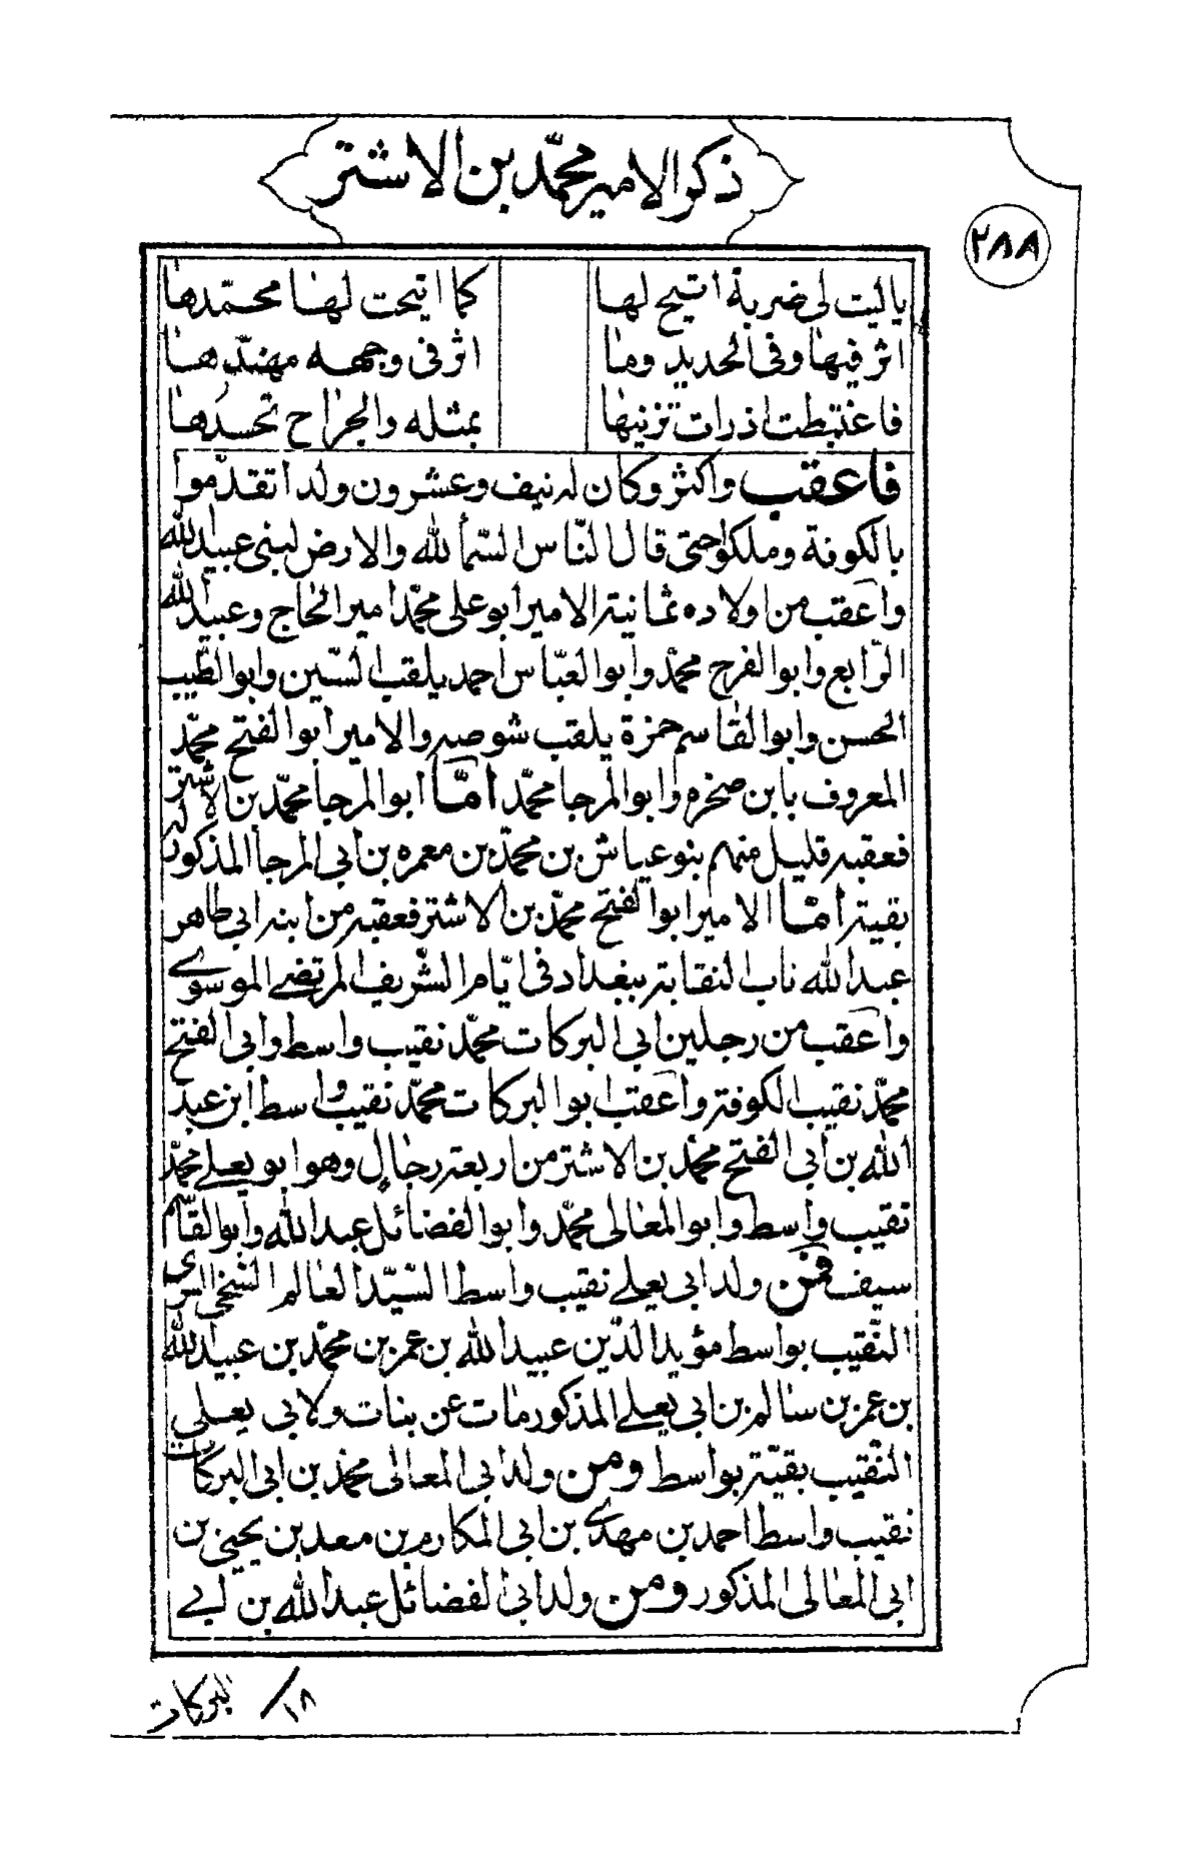 ذكر الامير محمّد بن الاشتر
٢٨٨
ياليت لى ضربة اتيح لها كما اتيحت لها محمّدها
اثر فيها وفى الحديد وما اثر فى وجهه مهنّدها
فاغتبطت اذ رات تزنيها بمثله والجراح تحسدها
فاعقب واكثر وكان له نيف وعشرون ولدا تقدّموا
بالكوفة وملكوا حتى قال النّاس السّمأ لله والارض لبنى عبيدالله
واعقب من اولاده ثمانية الامير ابو على محمّد امير الحاج وعبيدالله
الرّابع وابو الفرج محمّد وابو العبّاس احمد يلقب السّين وابو الطّيب
الحسن وابو القاسم حمزة يلقب شوصه والامير ابو الفتح محمّد
المعروف بابن صخره وابو المرجا محمّد امّا ابو المرجا محمّد بن الاشتر
فعقبه قليل منهم بنو عياش بن محمّد بن معمره بن ابي المرجا المذكور له
بقية امّا الامير ابو الفتح محمّد بن الاشتر فعقبه من ابنه ابي طاهر
عبدالله ناب النقابة ببغداد فى ايّام الشّريف المرتضى الموسوي
واعقب من رجلين ابي البركات محمّد نقيب واسط وابي الفتح
محمّد نقيب الكوفة واعقب ابو البركات محمّد نقيب واسط ابن عبد
الله بن ابي الفتح محمّد بن الاشتر من اربعة رجال وهو ابو يعلى محمّد
نقيب واسط وابو المعالى محمّد وابو الفضائل عبدالله وابو القاسم
سيف فمن ولد ابي يعلى نقيب واسط السّيّد العالم الشخى السرى
النّقيب بواسط مؤيد الدّين عبيدالله بن عمر بن محمّد بن عبيدالله
بن عمر بن سالم بن ابي يعلى المذكور مات عن بنات ولابي يعلى
النّقيب بقيّة بواسط ومن ولد ابي المعالى محمّد بن ابي البركات
نقيب واسط احمد بن مهدي بن ابي المكارم بن معد بن يحيى بن
ابي المعالى المذكور ومن ولد ابي الفضائل عبدالله بن ابي
١٨/ البركات